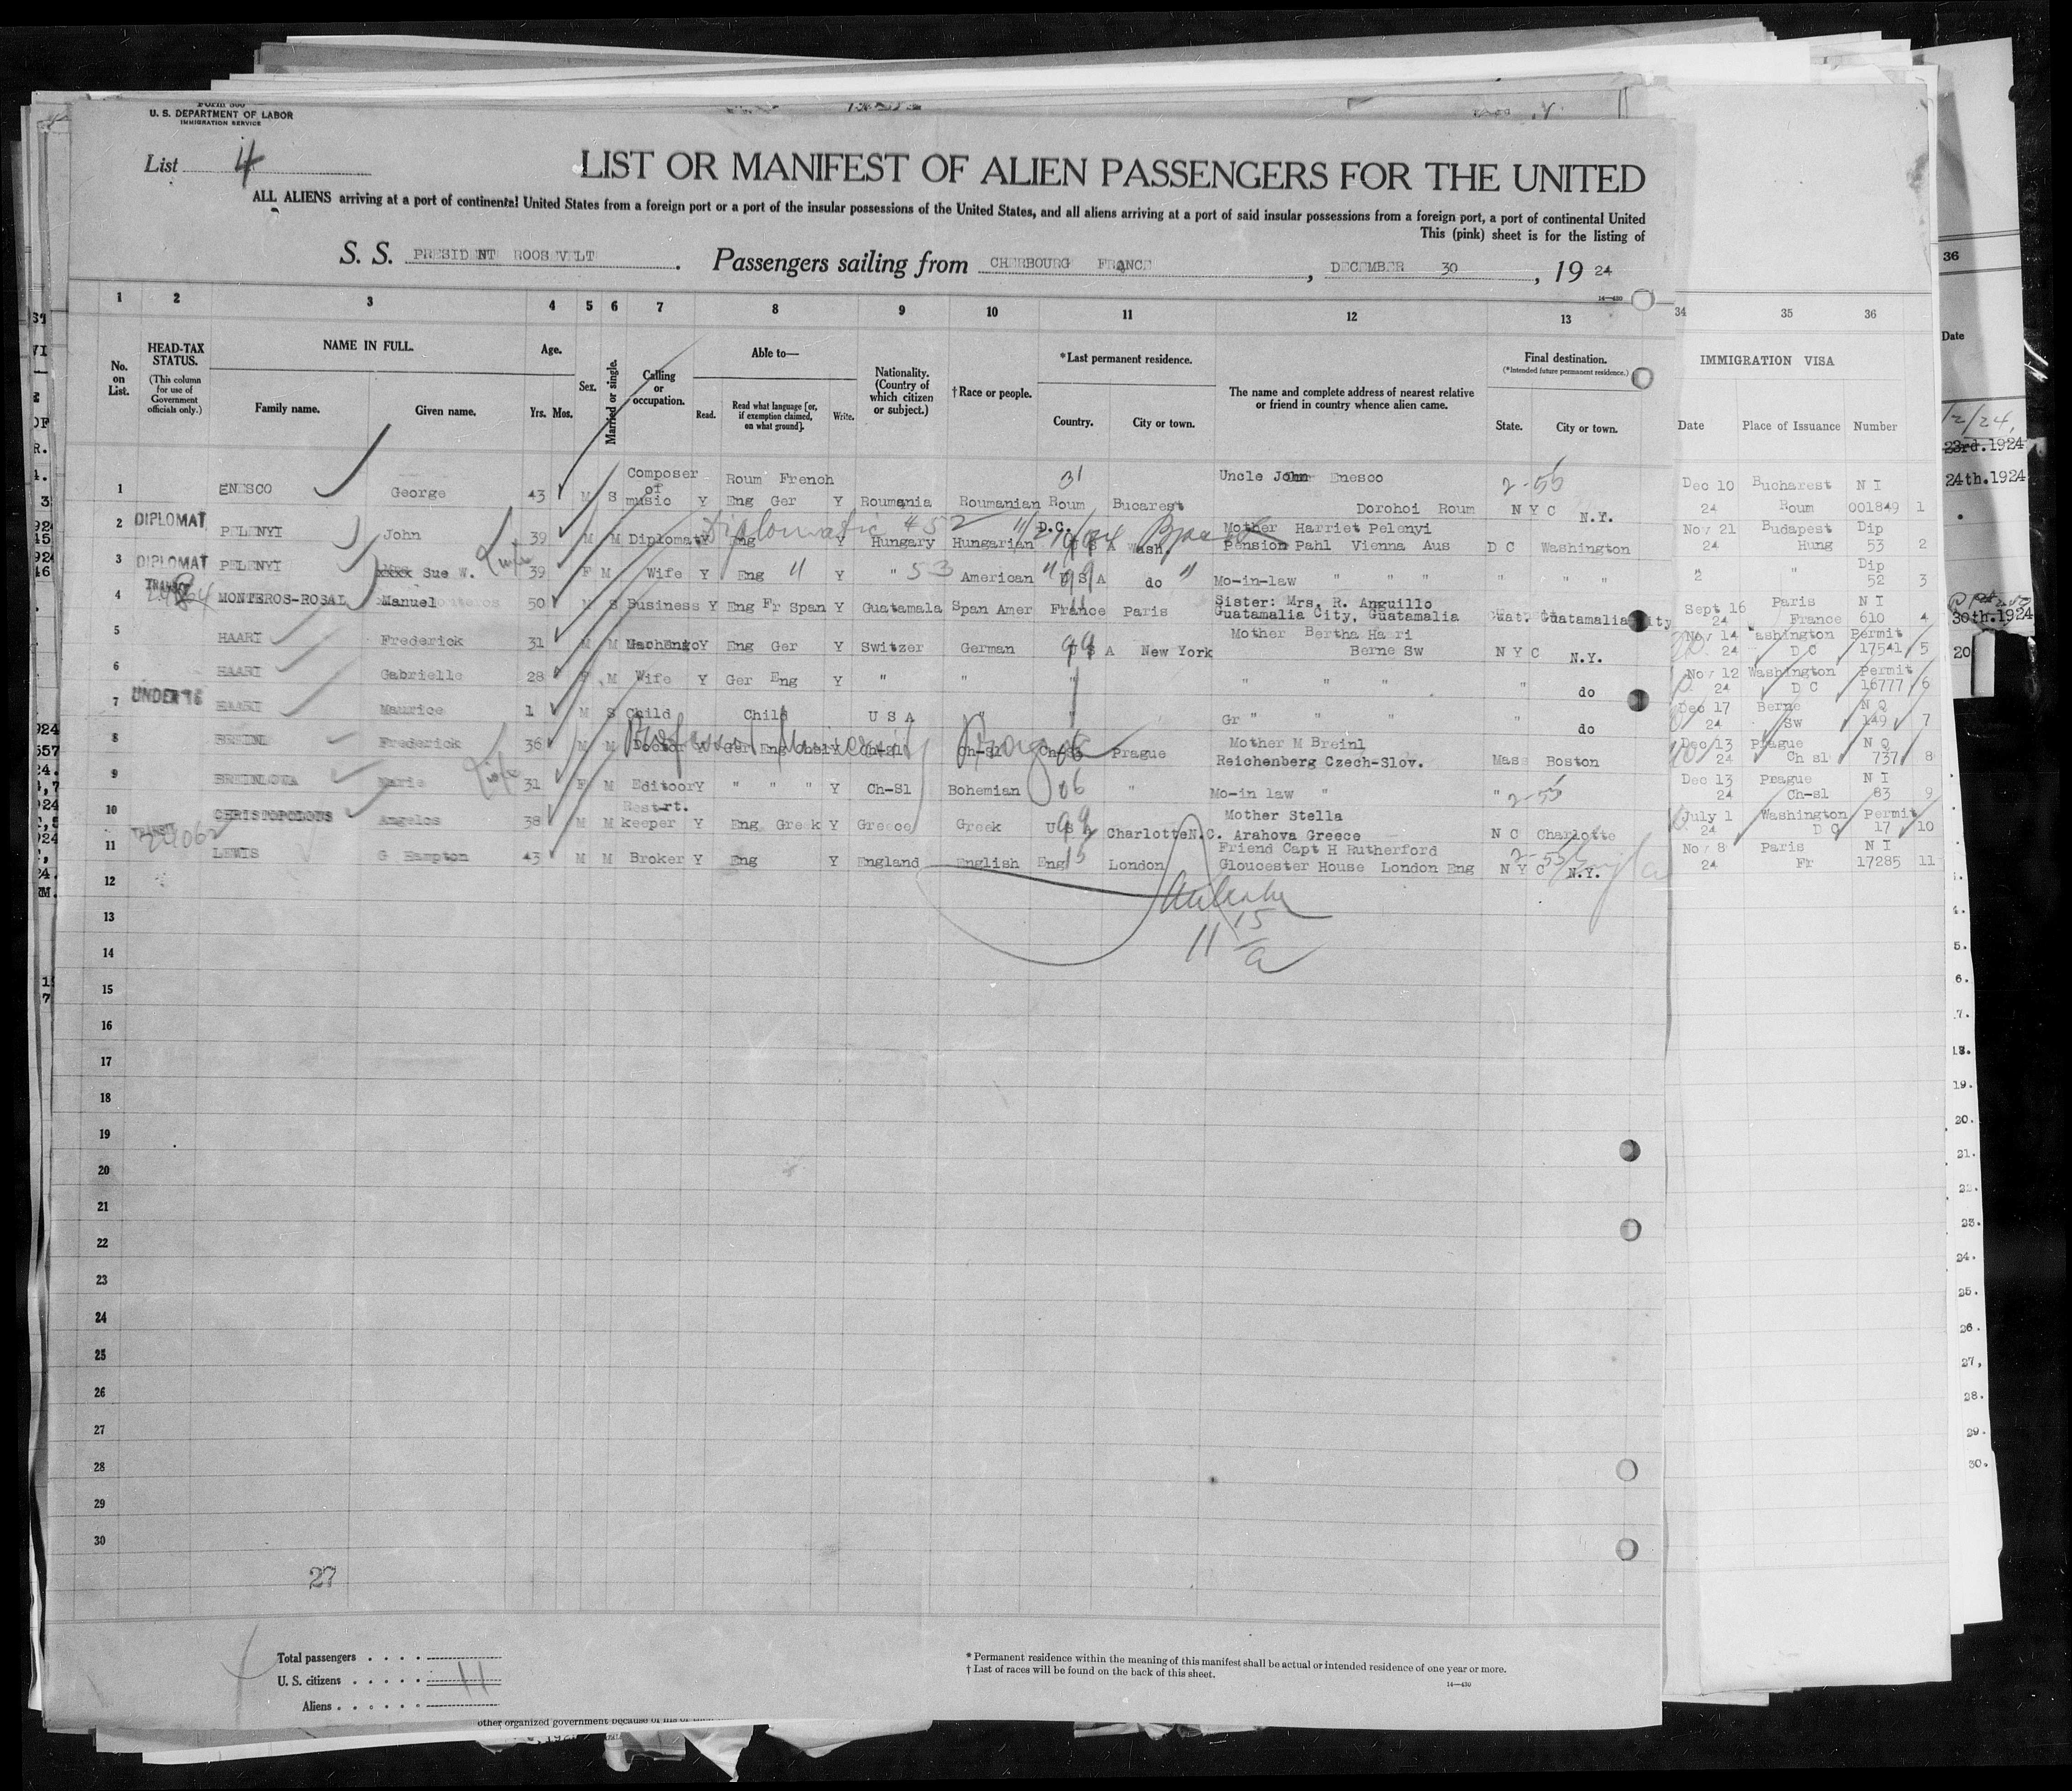 Form 500
U. S. DEPARTMENT OF LABOR
IMMIGRATION SERVICE
List 4
LIST OR MANIFEST OF ALIEN PASSENGERS FOR THE UNITED
ALL ALIENS arriving at a port of continental United States from a foreign port or a port of the insular possessions of the United States, and all aliens arriving at a port of said insular possessions from a foreign port, a port of continental United
This (pink) sheet is for the listing of
S. S. PRESIDENT ROOSEVELT . Passengers sailing from CHERBOURG FRANCE , DECEMBER 30 , 19 24
14—430
1 2 3 4 5 6 7 8 9 10 11 12 13 34 35 36
No. on List.
HEAD-TAX STATUS.
(This column for use of Government officials only.)
NAME IN FULL.
Family name. Given name.
Age.
Yrs. Mos.
Sex.
Married or single.
Calling or occupation.
Able to—
Read. Read what language [or, if exemption claimed, on what ground]. Write.
Nationality. (Country of which citizen or subject.)
†Race or people.
*Last permanent residence.
Country. City or town.
The name and complete address of nearest relative or friend in country whence alien came.
Final destination.
(*Intended future permanent residence.)
State. City or town.
IMMIGRATION VISA
Date Place of Issuance Number
1 ENESCO George 43 M S Composer of music Y Roum French Eng Ger Y Roumania Roumanian Roum Bucarest Uncle John Enesco Dorohoi Roum N Y C N.Y. Dec 10 24 Bucharest Roum N I 001849 1
2 DIPLOMAT PELENYI John 39 M M Diplomat Y Eng Y Hungary Hungarian U S A Wash. D.C. Mother Harriet Pelenyi Pension Pahl Vienna Aus D C Washington Nov 21 24 Budapest Hung Dip 53 2
Diplomatic #52
3 DIPLOMAT PELENYI xxxx Sue W. wife 39 F M Wife Y Eng Y " 53 American U S A do Mo-in-law " " " " " " " " Dip 52 3
4 TRANSIT MONTEROS-ROSAL Manuel 50 M S Business Y Eng Fr Span Y Guatamala Span Amer France Paris Sister: Mrs. R. Anguillo Guatamalia City, Guatamalia Guat. Guatamalia City Sept 16 24 Paris France N I 610 4
5 HAARI Frederick 31 M M Y Eng Ger Y Switzer German U S A New York Mother Bertha Haari Berne Sw N Y C N.Y. Nov 14 24 Washington D C Permit 17541 5
6 HAARI Gabrielle 28 F M Wife Y Ger Eng Y " " " " " " " do Nov 12 24 Washington D C Permit 16777 6
7 UNDER 16 HAARI Maurice 1 M S Child Child U S A " " Gr " " " " do Dec 17 24 Berne Sw N Q 149 7
8 BREINL Frederick 36 M M Doctor Y Ger Eng Y Ch-sl Ch-sl Ch-sl Prague Mother M Breinl Reichenberg Czech-Slov. Mass Boston Dec 13 24 Prague Ch sl N Q 737 8
Professor University Prague
9 BREINLOVA Marie wife 31 F M Editoor Y " " " Y Ch-Sl Bohemian 06 " Mo-in law " " 2-55 Dec 13 24 Prague Ch-sl N I 83 9
10 CHRISTOPOLOUS Angelos 38 M M Restrt. keeper Y Eng Greek Y Greece Greek U S A Charlotte N.C. Mother Stella Arahova Greece N C Charlotte July 1 24 Washington D C Permit 17 10
11 TRANSIT LEWIS G Hampton 43 M M Broker Y Eng Y England English Eng London Friend Capt H Rutherford Gloucester House London Eng N Y C N.Y. Nov 8 24 Paris Fr N I 17285 11
12
13
11 15/a
14
15
16
17
18
19
20
21
22
23
24
25
26
27
28
29
30
27
Total passengers . . . .
U. S. citizens . . . . . 11
Aliens . . . . . .
* Permanent residence within the meaning of this manifest shall be actual or intended residence of one year or more.
† List of races will be found on the back of this sheet.
14—430
36
Date
23rd.1924
24th.1924
30th.1924
20